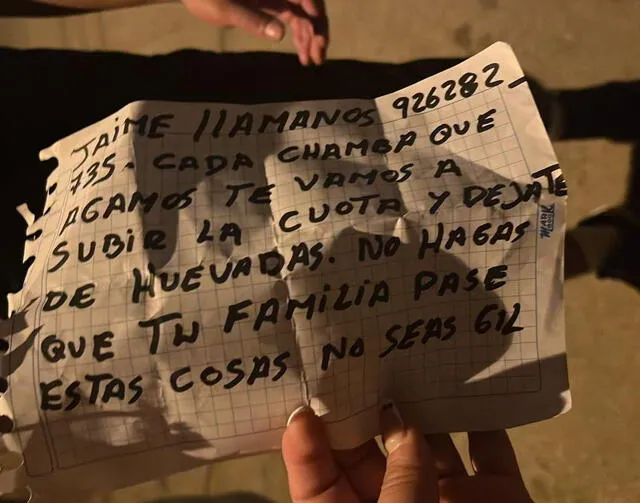 JAIME llAMANOS 926282
735. CADA CHAMBA QUE
AGAMOS TE VAMOS A
SUBIR LA CUOTA Y DEJATE
DE HUEVADAS. NO HAGAS
QUE TU FAMILIA PASE
ESTAS COSAS NO SEAS GIL